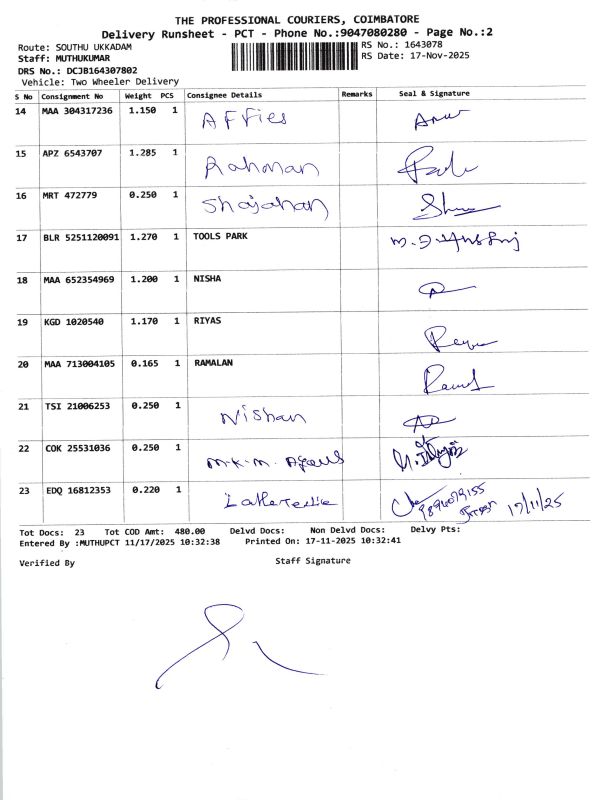 THE PROFESSIONAL COURIERS, COIMBATORE
Delivery Runsheet - PCT - Phone No.:9047080280 - Page No.:2
Route: SOUTHU UKKADAM RS No.: 1643078
Staff: MUTHUKUMAR RS Date: 17-Nov-2025
DRS No.: DCJB164307802
Vehicle: Two Wheeler Delivery
S No Consignment No Weight PCS Consignee Details Remarks Seal & Signature
14 MAA 304317236 1.150 1 AFFies
15 APZ 6543707 1.285 1 Rahman
16 MRT 472779 0.250 1 Shajahan
17 BLR 5251120091 1.270 1 TOOLS PARK
18 MAA 652354969 1.200 1 NISHA
19 KGD 1020540 1.170 1 RIYAS
20 MAA 713004105 0.165 1 RAMALAN
21 TSI 21006253 0.250 1 Nishan
22 COK 25531036 0.250 1 M.K.M.
23 EDQ 16812353 0.220 1 17/11/25
Tot Docs: 23 Tot COD Amt: 480.00 Delvd Docs: Non Delvd Docs: Delvy Pts:
Entered By :MUTHUPCT 11/17/2025 10:32:38 Printed On: 17-11-2025 10:32:41
Verified By Staff Signature